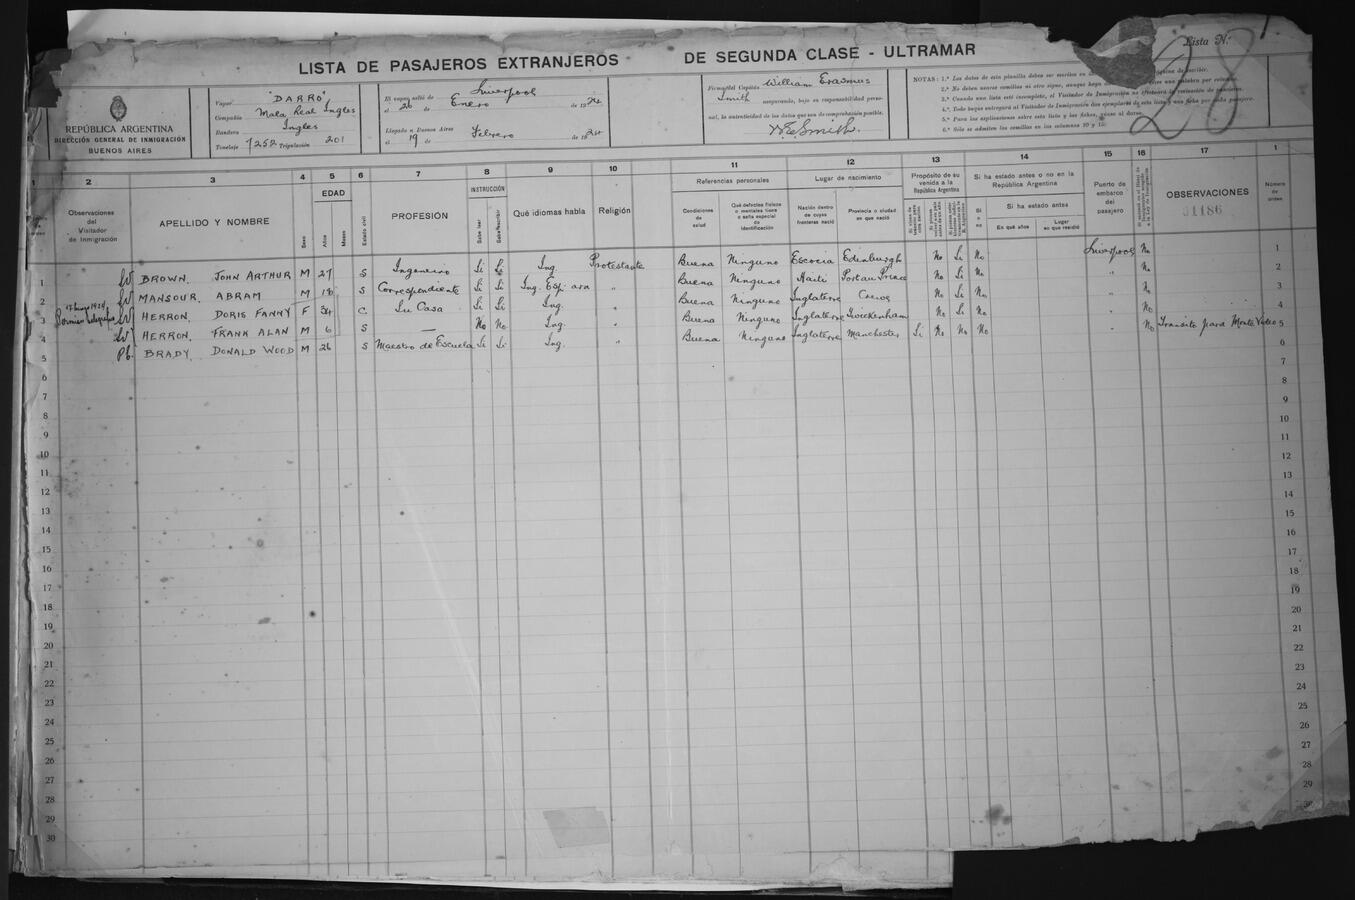 Lista N.º 1
28
LISTA DE PASAJEROS EXTRANJEROS DE SEGUNDA CLASE - ULTRAMAR
REPÚBLICA ARGENTINA
DIRECCIÓN GENERAL DE INMIGRACIÓN
BUENOS AIRES
Vapor "DARRO"
Compañía Mala Real Inglesa
Bandera Ingles
Tonelaje 7252 Tripulación 201
El vapor salió de Liverpool
el 26 de Enero de 1924
Llegado a Buenos Aires
el 19 de Febrero de 1924
Firma del Capitán William Erasmus
Smith asegurando, bajo su responsabilidad perso-
nal, la autenticidad de los datos que son de comprobación posible.
W E Smith.
NOTAS: 1.ª Los datos de esta planilla deben ser escritos en
2.ª No deben usarse comillas ni otro signo, aunque haya
3.ª Cuando una lista esté incompleta, el Visitador de Inmigración
4.ª Todo buque entregará al Visitador de Inmigración dos ejemplares de esta lista y una ficha por cada pasajero.
5.ª Para las explicaciones sobre esta lista y las fichas, véase al dorso.
6.ª Sólo se admiten las comillas en las columnas 10 y 15.
1 2 3 4 5 6 7 8 9 10 11 12 13 14 15 16 17 1
Observaciones del Visitador de Inmigración
APELLIDO Y NOMBRE
Sexo
EDAD
Años
Meses
Estado civil
PROFESIÓN
INSTRUCCIÓN
Sabe leer
Sabe escribir
Qué idiomas habla
Religión
Referencias personales
Condiciones de salud
Qué defectos físicos o mentales tiene o seña especial de identificación
Lugar de nacimiento
Nación dentro de cuyas fronteras nació
Provincia o ciudad en que nació
Propósito de su venida a la República Argentina
Si ha estado antes o no en la República Argentina
Sí o no
Si ha estado antes
En qué años
Lugar en que residió
Puerto de embarco del pasajero
OBSERVACIONES
31186
Número de orden
1 BROWN, JOHN ARTHUR M 27 S Ingeniero Si Si Ing. Protestante Buena Ninguno Escocia Edinburgh No Si No Liverpool No 1
2 MANSOUR, ABRAM M 18 S Correspondiente Si Si Ing. Esp. ara " Buena Ninguno Haiti Port au Prince No Si No " No 2
3 HERRON, DORIS FANNY F 34 C. Su Casa Si Si Ing. " Buena Ninguno Inglaterra Crewe No Si No " No 3
4 HERRON, FRANK ALAN M 6 S — No No Ing. " Buena Ninguno Inglaterra Twickenham No Si No " No 4
5 BRADY, DONALD WOOD M 26 S Maestro de Escuela Si Si Ing. " Buena Ninguno Inglaterra Manchester Si No No No " No Transito para Monte Video 5
6 6
7 7
8 8
9 9
10 10
11 11
12 12
13 13
14 14
15 15
16 16
17 17
18 18
19 19
20 20
21 21
22 22
23 23
24 24
25 25
26 26
27 27
28 28
29 29
30 30